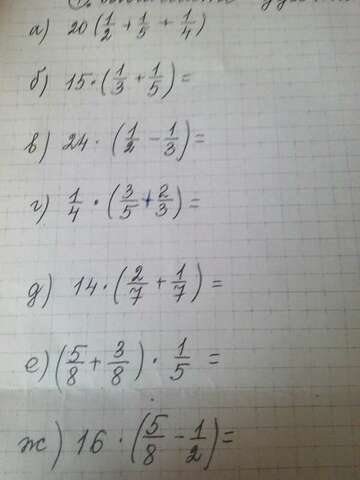 а) 20 (1/2 + 1/5 + 1/4)
б) 15 · (1/3 + 1/5) =
в) 24 · (1/2 - 1/3) =
г) 1/4 · (3/5 + 2/3) =
д) 14 · (2/7 + 1/7) =
е) (5/8 + 3/8) · 1/5 =
ж) 16 · (5/8 - 1/2) =